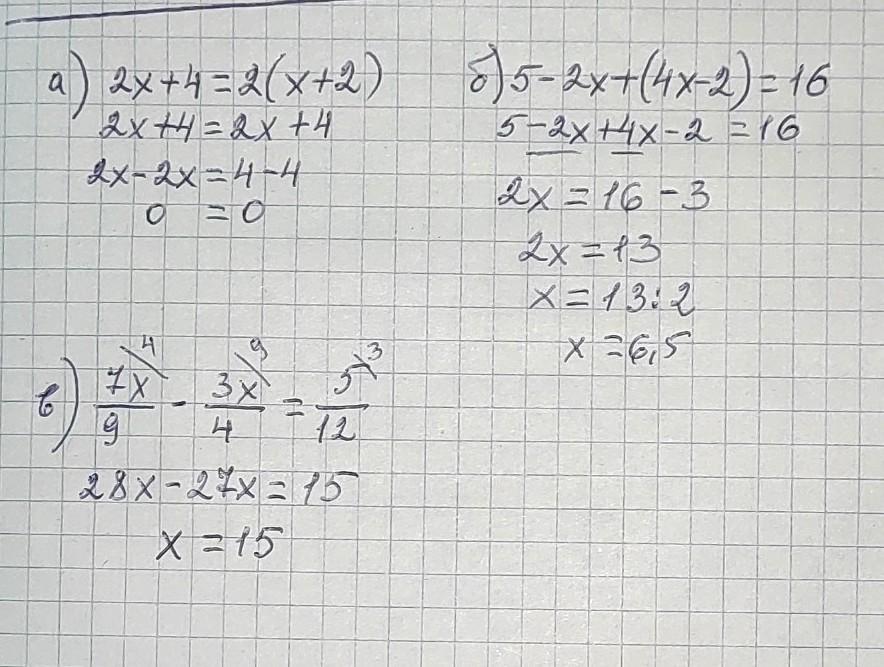 а) 2x+4=2(x+2)
2x+4=2x+4
2x-2x=4-4
0 =0
б) 5-2x+(4x-2)=16
5-2x+4x-2=16
2x=16-3
2x=13
x=13:2
x=6,5
в) 7x/9 \4 - 3x/4 \9 = 5/12 \3
28x-27x=15
x=15